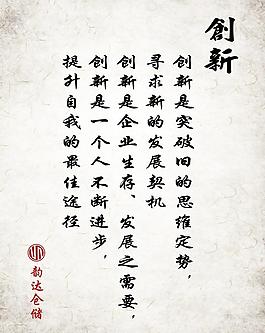 創新
创新是突破旧的思维定势，
寻求新的发展契机
创新是企业生存、发展之需要，
创新是一个人不断进步，
提升自我的最佳途径
韵达仓储